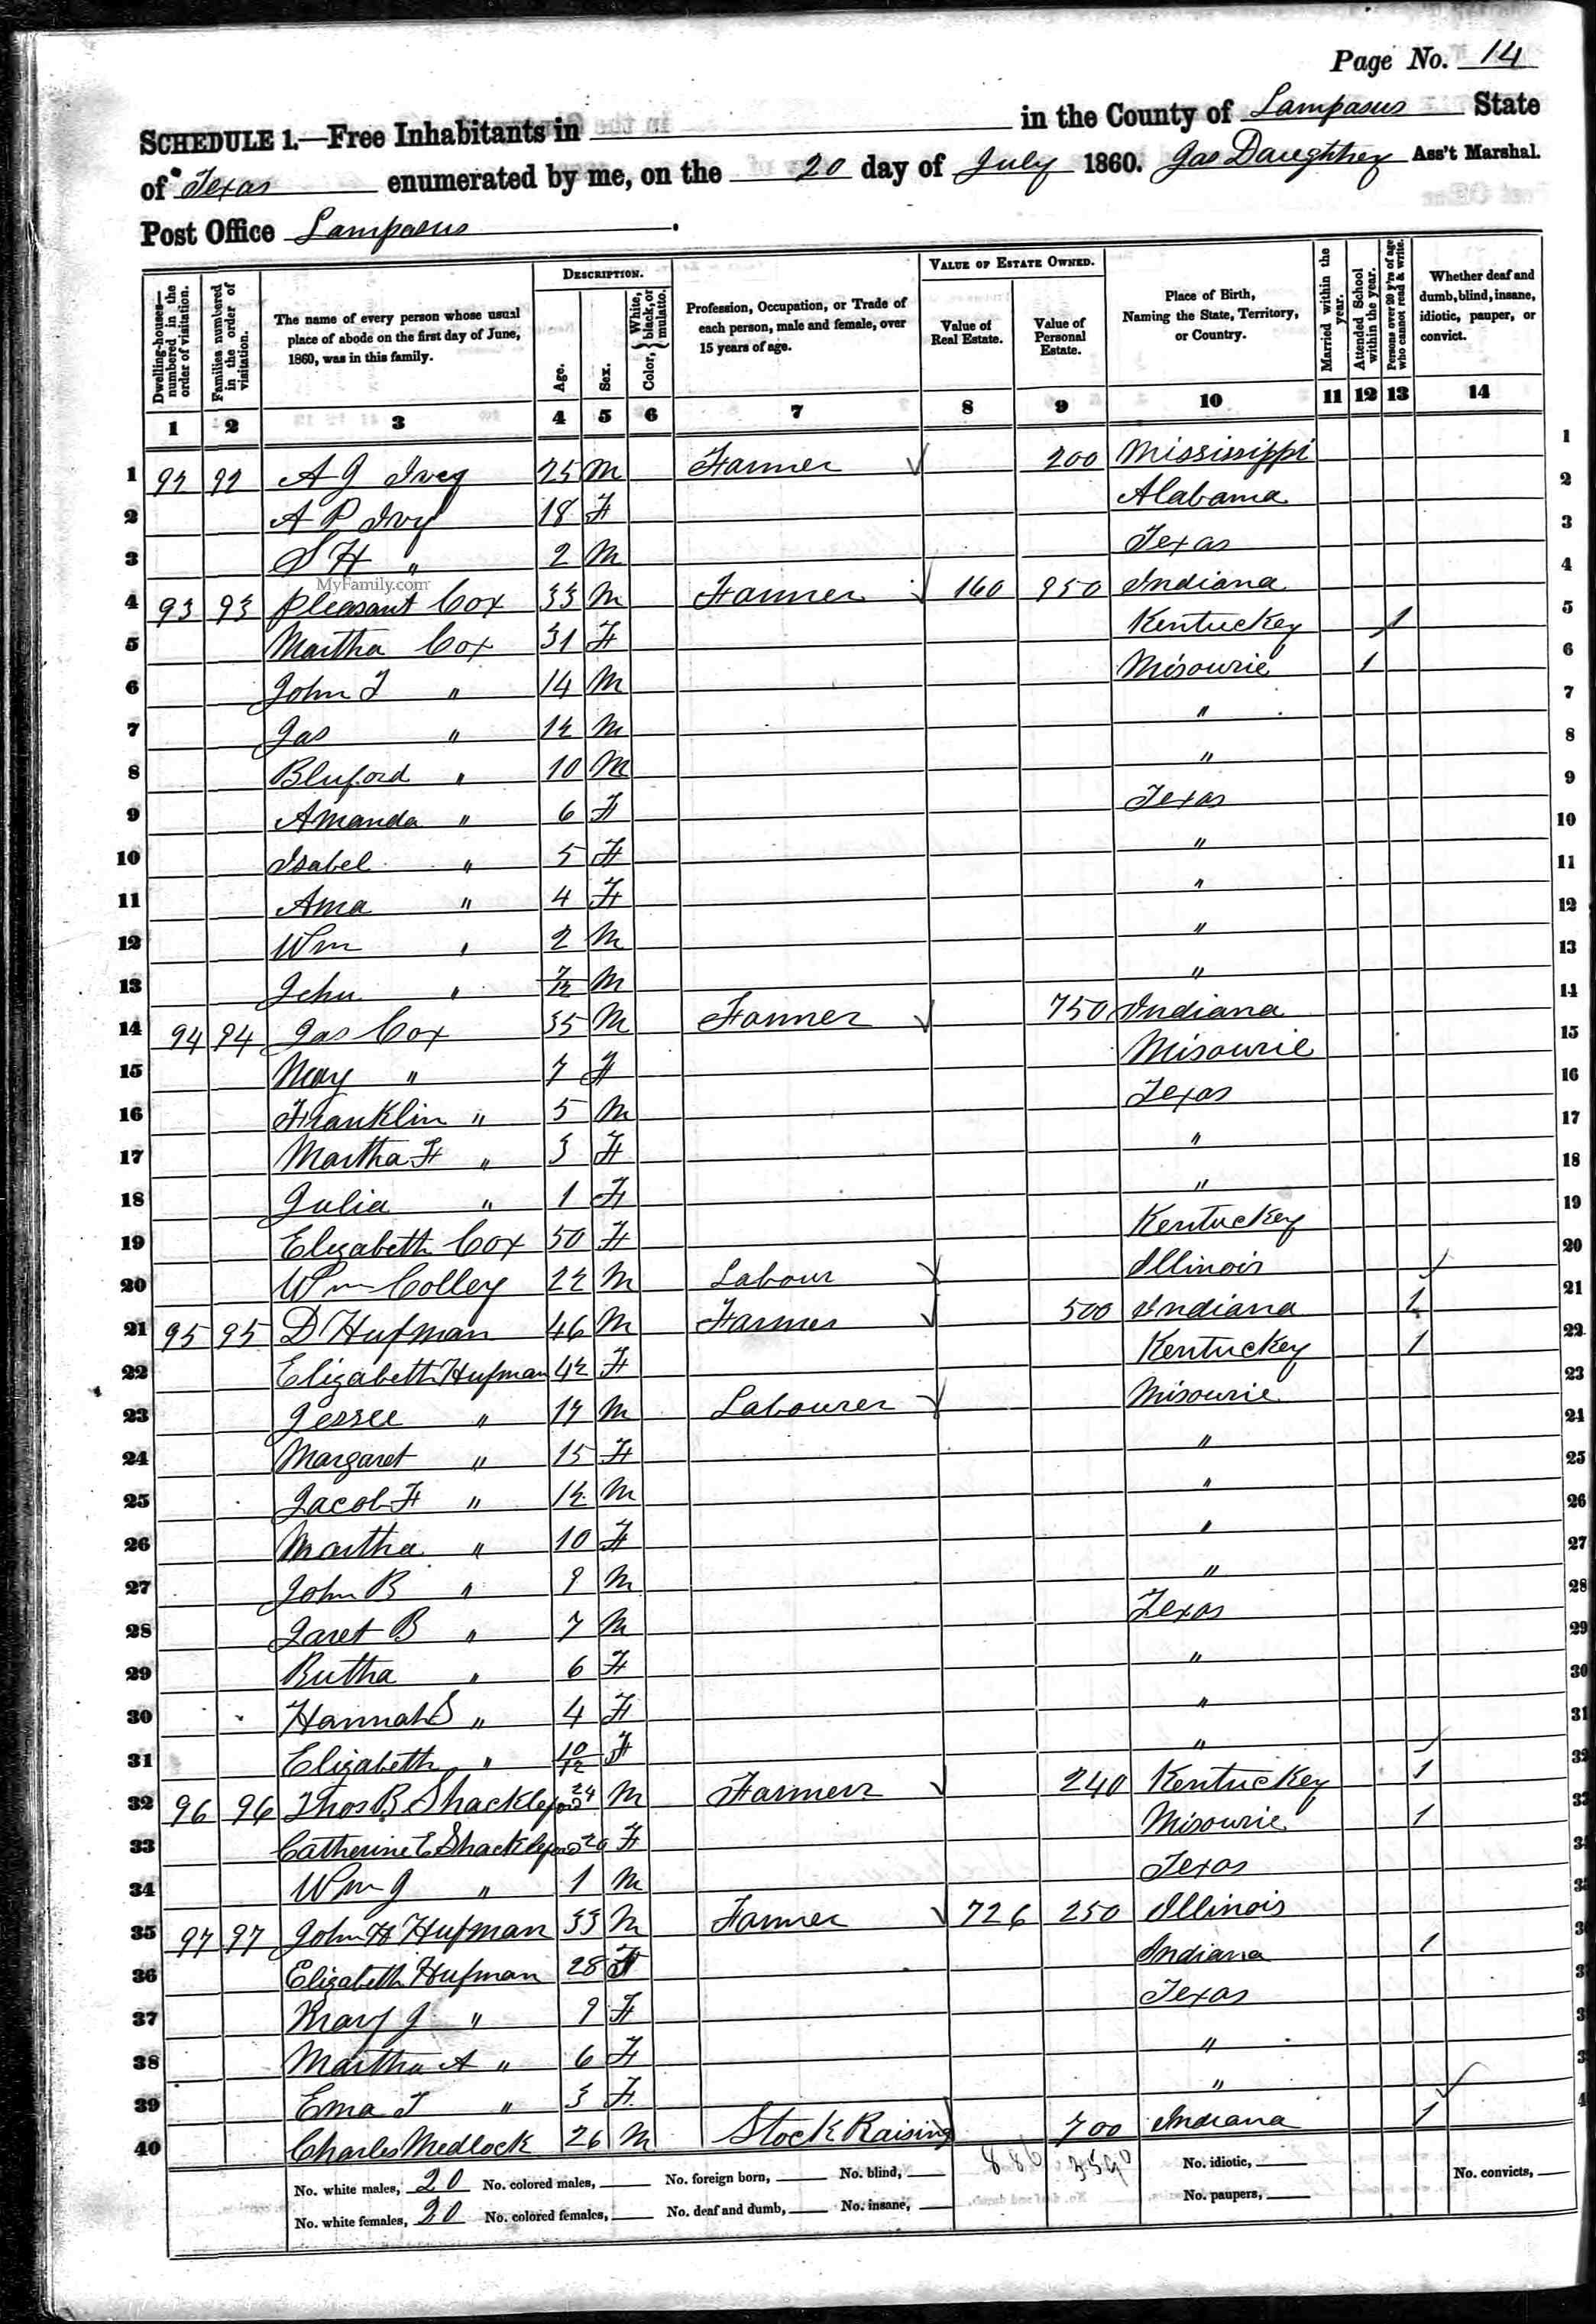 Page No. 14
SCHEDULE 1.—Free Inhabitants in in the County of Lampasus State
of Texas enumerated by me, on the 20 day of July 1860. Jas Daughtrey Ass't Marshal.
Post Office Lampasus.
Dwelling-houses—numbered in the order of visitation. Families numbered in the order of visitation. The name of every person whose usual place of abode on the first day of June, 1860, was in this family. DESCRIPTION. Age. Sex. Color, White, black, or mulatto. Profession, Occupation, or Trade of each person, male and female, over 15 years of age. VALUE OF ESTATE OWNED. Value of Real Estate. Value of Personal Estate. Place of Birth, Naming the State, Territory, or Country. Married within the year. Attended School within the year. Persons over 20 y'rs of age who cannot read & write. Whether deaf and dumb, blind, insane, idiotic, pauper, or convict.
1 2 3 4 5 6 7 8 9 10 11 12 13 14
1 92 92 A J Ivey 25 M Farmer 200 Mississippi 1
2 A P Ivy 18 F Alabama 2
3 S H " 2 M Texas 3
MyFamily.com
4 93 93 Pleasant Cox 33 M Farmer 160 950 Indiana 4
5 Martha Cox 31 F Kentuckey 1 5
6 John T " 14 M Misourie 1 6
7 Jas " 12 M " 7
8 Bluford " 10 M " 8
9 Amanda " 6 F Texas 9
10 Isabel " 5 F " 10
11 Ama " 4 F " 11
12 Wm " 2 M " 12
13 Jehu " 7/12 M " 13
14 94 94 Jas Cox 35 M Farmer 750 Indiana 14
15 May " 7 F Misourie 15
16 Franklin " 5 M Texas 16
17 Martha F " 3 F " 17
18 Julia " 1 F " 18
19 Elizabeth Cox 50 F Kentuckey 19
20 Wm Colley 22 M Labour Illinois 20
21 95 95 D Hufman 46 M Farmer 500 Indiana 1 21
22 Elizabeth Hufman 42 F Kentuckey 1 22
23 Jessee " 17 M Labourer Misourie 23
24 Margaret " 15 F " 24
25 Jacob F " 12 M " 25
26 Martha " 10 F " 26
27 John B " 9 M " 27
28 Jaret B " 7 M Texas 28
29 Rutha " 6 F " 29
30 Hannah S " 4 F " 30
31 Elizabeth " 10/12 F " 31
32 96 96 Thos B Shackleford 24 M Farmer 240 Kentuckey 1 32
33 Catherine E Shackleford 20 F Misourie 1
34 Wm J " 1 M Texas
35 97 97 John H Hufman 33 M Farmer 726 250 Illinois
36 Elizabeth Hufman 28 F Indiana 1
37 Mary J " 9 F Texas
38 Martha A " 6 F "
39 Ema T " 3 F "
40 Charles Medlock 26 M Stock Raising 700 Indiana 1
No. white males, 20 No. colored males, No. foreign born, No. blind, 886 3590 No. idiotic, No. convicts,
No. white females, 20 No. colored females, No. deaf and dumb, No. insane, No. paupers,